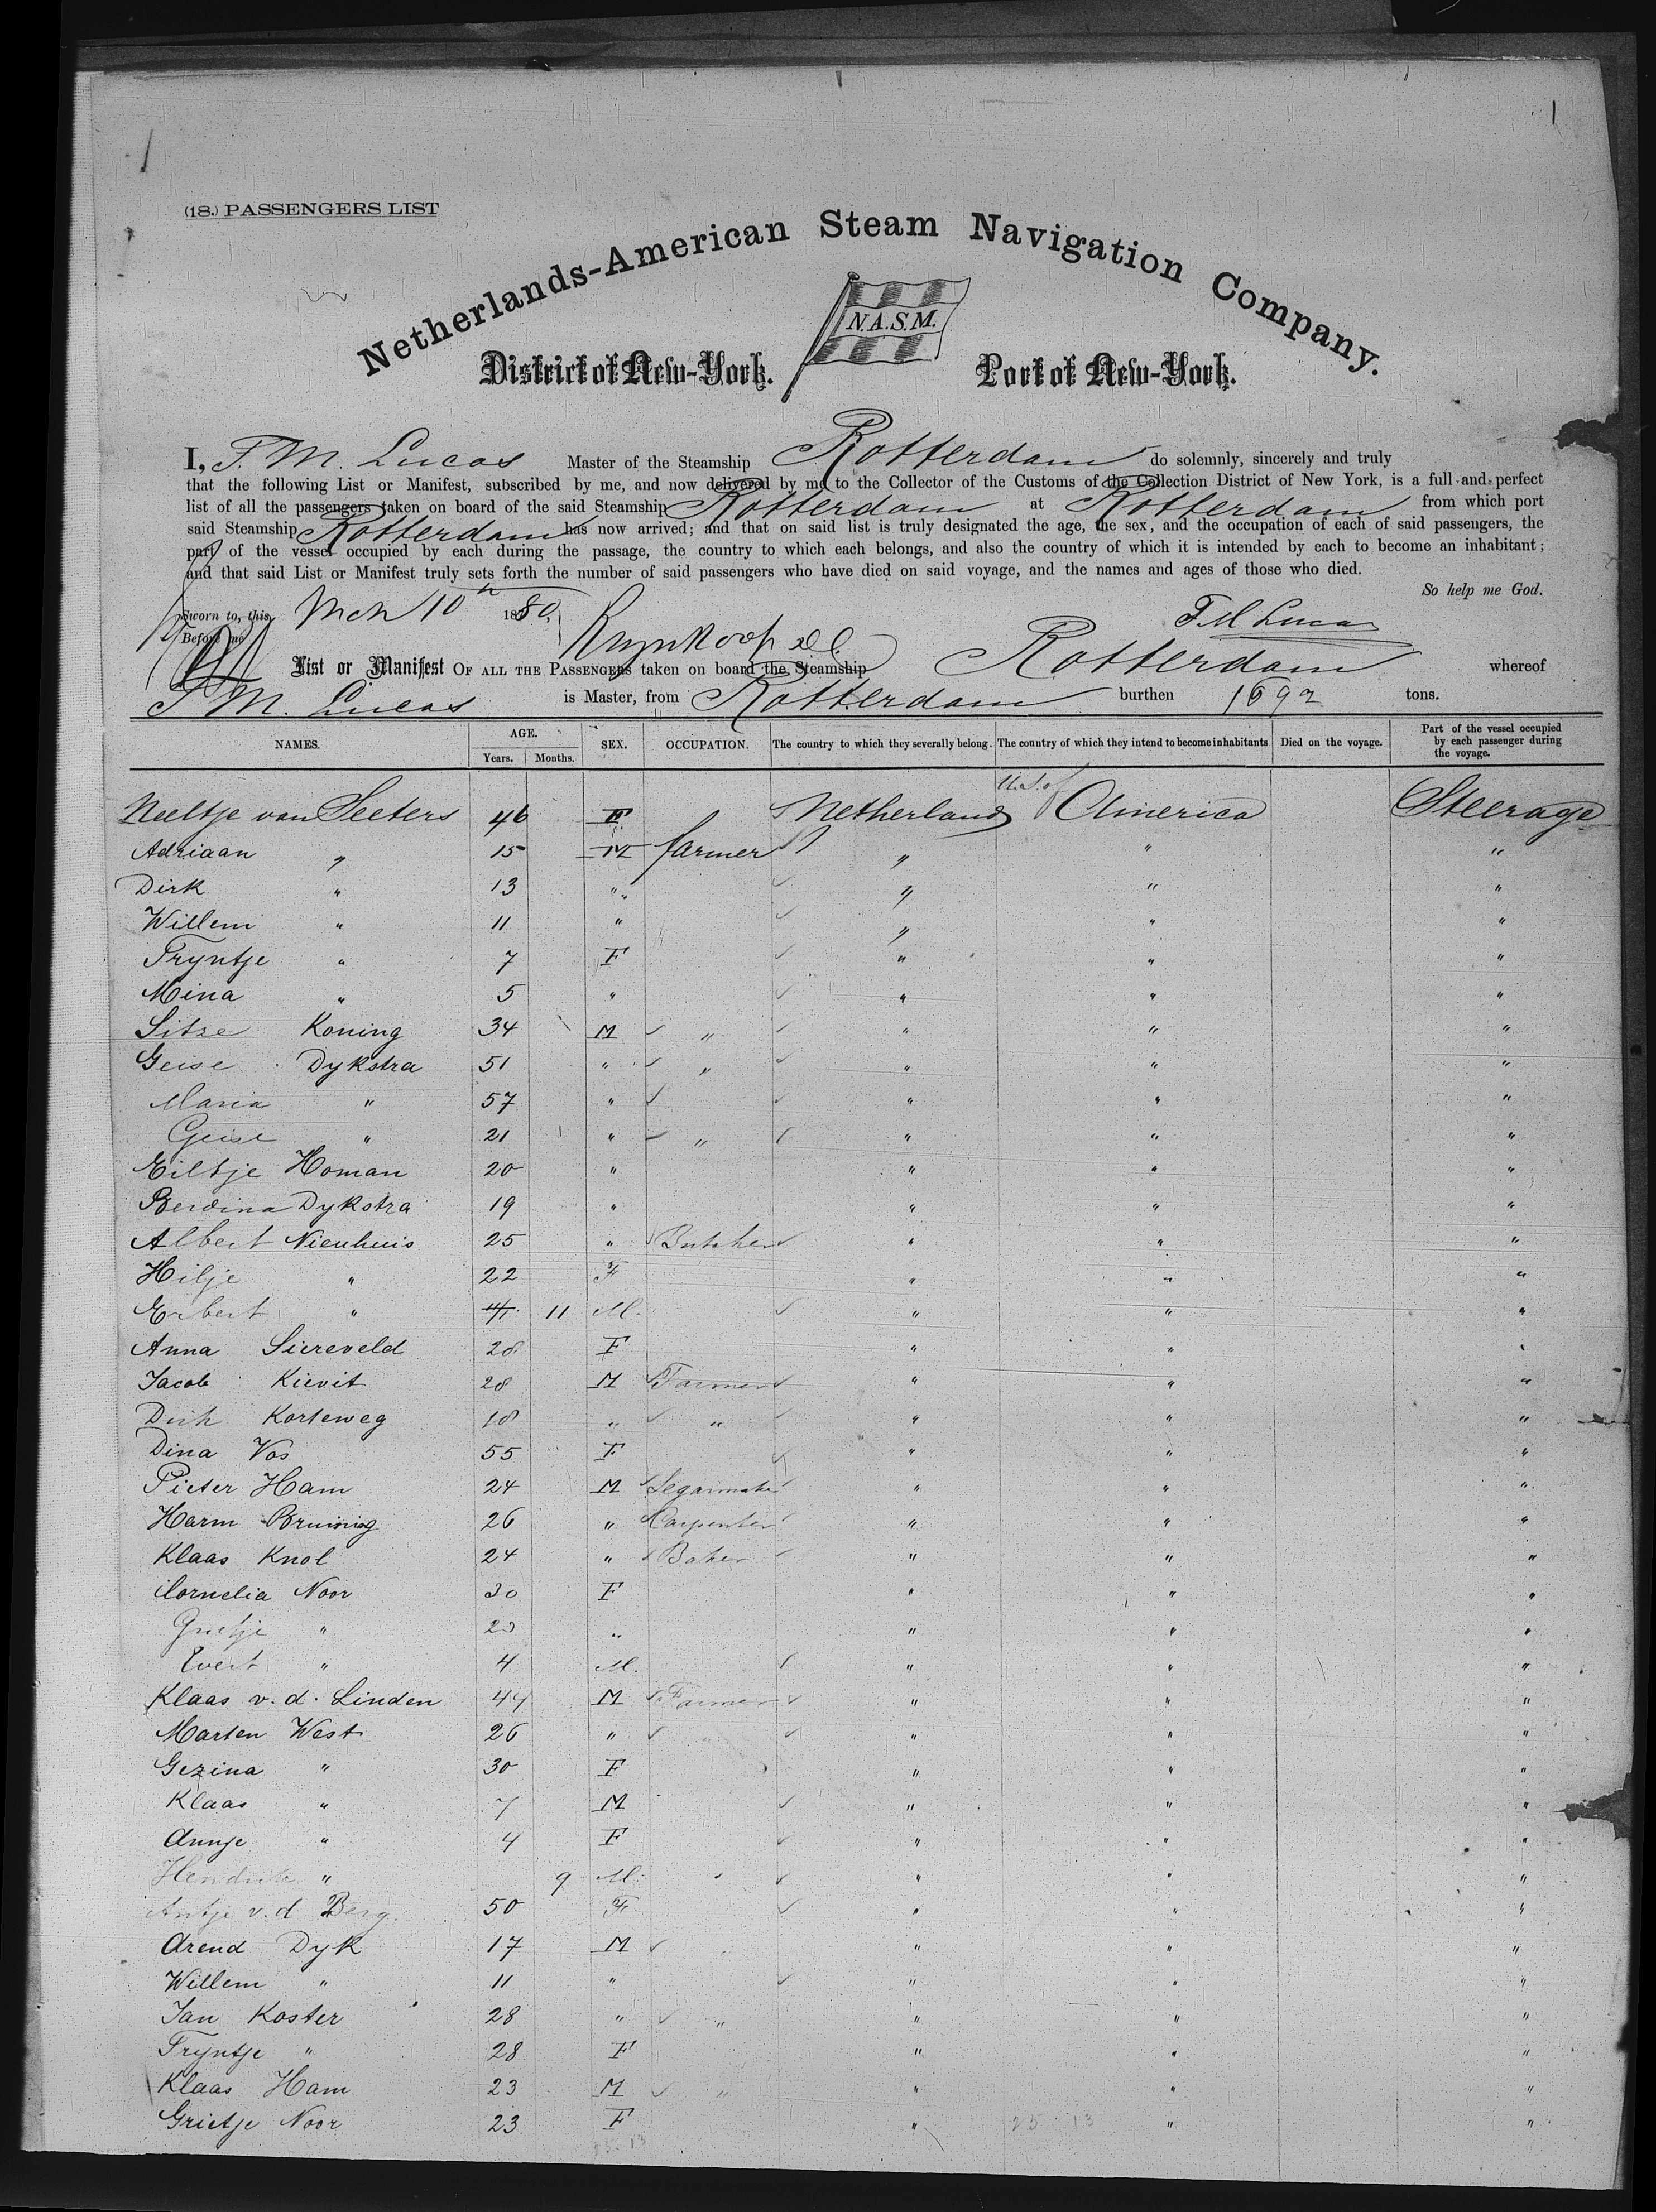 (18.) PASSENGERS LIST
Netherlands-American Steam Navigation Company.
N.A.S.M.
District of New-York. Port of New-York.
I, F. M. Lucas Master of the Steamship Rotterdam do solemnly, sincerely and truly
that the following List or Manifest, subscribed by me, and now delivered by me to the Collector of the Customs of the Collection District of New York, is a full and perfect
list of all the passengers taken on board of the said Steamship Rotterdam at Rotterdam from which port
said Steamship Rotterdam has now arrived; and that on said list is truly designated the age, the sex, and the occupation of each of said passengers, the
part of the vessel occupied by each during the passage, the country to which each belongs, and also the country of which it is intended by each to become an inhabitant;
and that said List or Manifest truly sets forth the number of said passengers who have died on said voyage, and the names and ages of those who died.
So help me God.
Sworn to, this Mch 10th 1880, F. M Lucas
Before me
List or Manifest OF ALL THE PASSENGERS taken on board the Steamship Rotterdam whereof
F M. Lucas is Master, from Rotterdam burthen 1692 tons.
NAMES. AGE. Years. Months. SEX. OCCUPATION. The country to which they severally belong. The country of which they intend to become inhabitants Died on the voyage. Part of the vessel occupied by each passenger during the voyage.
Neeltje van Seeters 46 F Netherlands U.S. of America Steerage
Adriaan " 15 M farmer " " "
Dirk " 13 " " " "
Willem " 11 " " " "
Tryntje " 7 F " " "
Mina " 5 " " " "
Sitze Koning 34 M " " " "
Geise Dykstra 51 " " " " "
Maria " 57 " " " "
Geise " 21 " " " " "
Eiltje Homan 20 " " " "
Berdina Dykstra 19 " " " "
Albert Nienhuis 25 " Butcher " " "
Hilje " 22 F " " "
Erbert " 11 M. " " "
Anna Siereveld 28 F " " "
Jacob Kievit 28 M Farmer " " "
Dirk Korteweg 18 " " " " "
Dina Vos 55 F " " "
Pieter Ham 24 M Segarmaker " " "
Harm Bruining 26 " Carpenter " " "
Klaas Knol 24 " Baker " " "
Cornelia Noor 30 F " " "
Grietje " " " " "
Evert " 4 M. " " "
Klaas v. d. Linden 44 M Farmer " " "
Marten West 26 " " " " "
Gezina " 30 F " " "
Klaas " 7 M " " "
Annje " 4 F " " "
Hendrik " 9 M. " " "
Antje v. d Berg. 50 F " " "
Arend Dyk 17 M " " " "
Willem " 11 " " " "
Jan Koster 28 " " " " "
Tryntje " 28 F " " "
Klaas Ham 23 M " " " "
Grietje Noor 23 F " " "